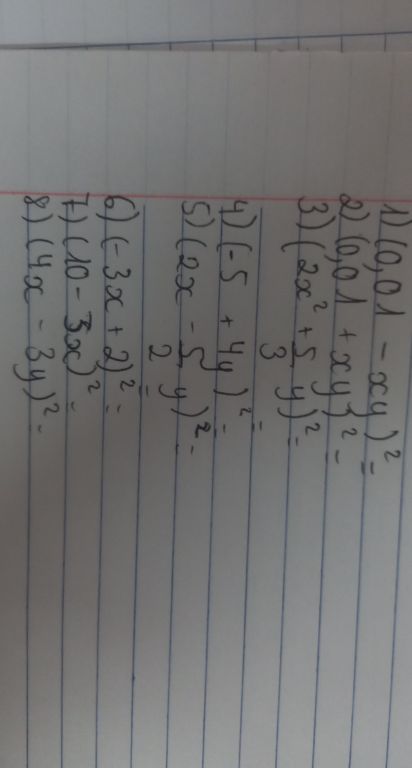 1) (0,01 - xy)² =
2) (0,01 + xy)² =
3) (2x² + 5/3 y)² =
4) (-5 + 4y)² =
5) (2x - 5/2 y)² =
6) (-3x + 2)² =
7) (10 - 3x)² =
8) (4x - 3y)² =